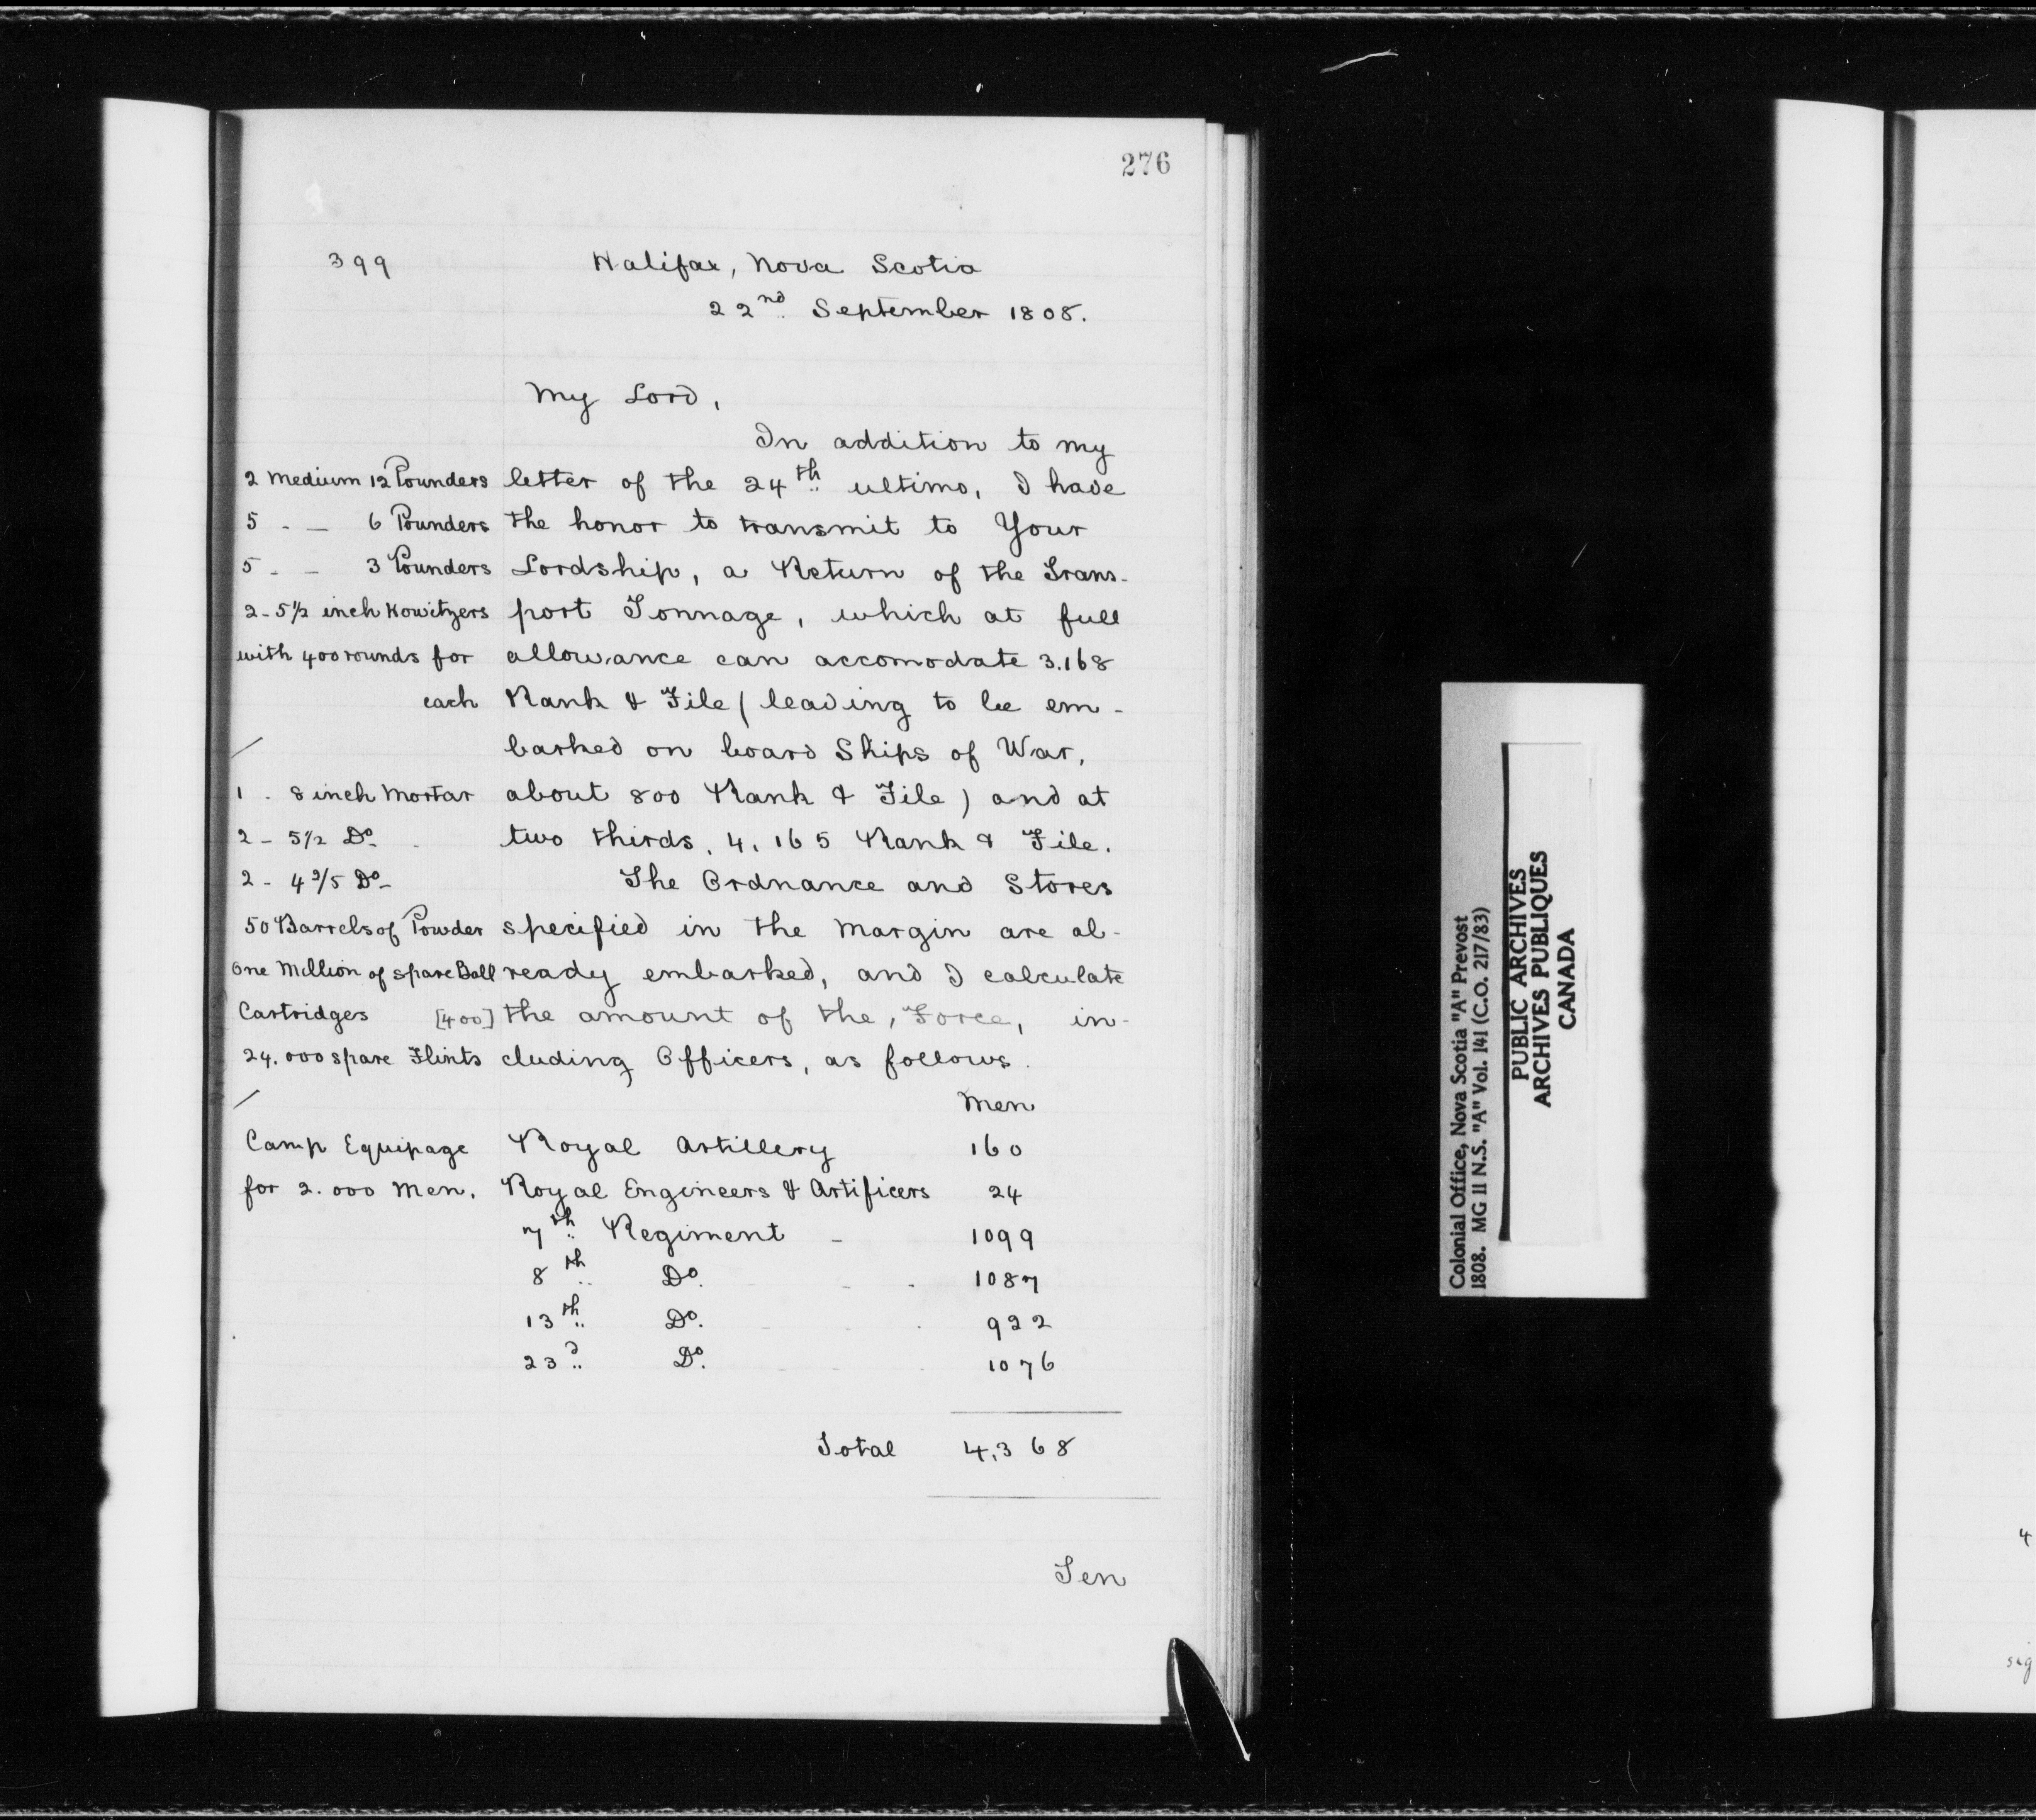 276
399
Halifax, Nova Scotia
22nd September 1808.
My Lord,
In addition to my
letter of the 24th ultimo, I have
the honor to transmit to Your
Lordship, a Return of the Trans-
port Tonnage, which at full
allowance can accomodate 3.168
Rank & File (leaving to be em-
barked on board Ships of War,
about 800 Rank & File) and at
two thirds, 4,165 Rank & File.
The Ordnance and Stores
specified in the Margin are al-
ready embarked, and I calculate
[400] the amount of the, Force, in-
cluding Officers, as follows.
2 Medium 12 Pounders
5 - - 6 Pounders
5 - - 3 Pounders
2 - 5 1/2 inch Howitzers
with 400 rounds for
each
/
1 - 8 inch Mortar
2 - 5 1/2 Do
2 - 4 2/5 Do
50 Barrels of Powder
One Million of spare Ball
Cartridges
24.000 spare Flints
/
Camp Equipage
for 2.000 Men.
Men
Royal Artillery 160
Royal Engineers & Artificers 24
7th Regiment - 1099
8th Do. 1087
13th Do. 922
23d Do. 1076
Total 4,368
Ten
Colonial Office, Nova Scotia "A" Prevost
1808. MG 11 N.S. "A" Vol. 141 (C.O. 217/83)
PUBLIC ARCHIVES
ARCHIVES PUBLIQUES
CANADA
4
sig